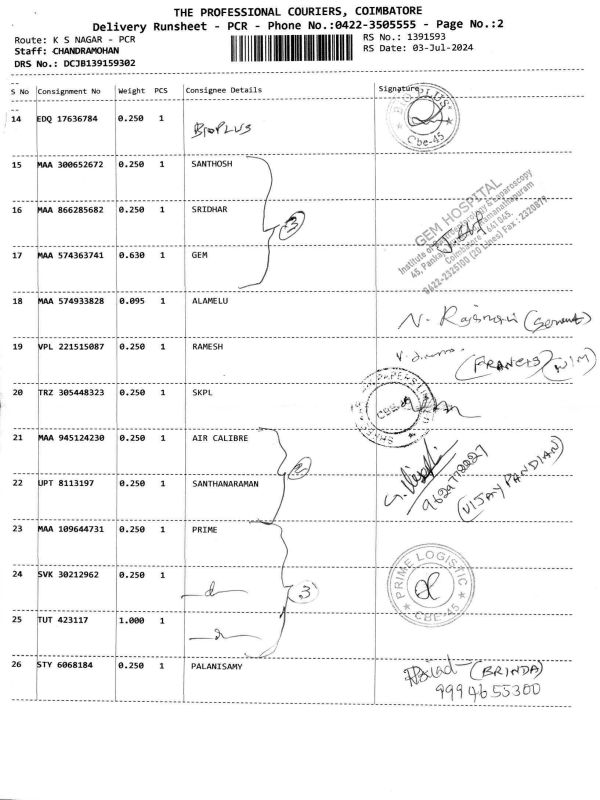 THE PROFESSIONAL COURIERS, COIMBATORE
Delivery Runsheet - PCR - Phone No.:0422-3505555 - Page No.:2
Route: K S NAGAR - PCR RS No.: 1391593
Staff: CHANDRAMOHAN RS Date: 03-Jul-2024
DRS No.: DCJB139159302
S No Consignment No Weight PCS Consignee Details Signature
14 EDQ 17636784 0.250 1 BIOPLUS
BIOPLUS
Cbe-45
15 MAA 300652672 0.250 1 SANTHOSH
16 MAA 866285682 0.250 1 SRIDHAR
3
17 MAA 574363741 0.630 1 GEM
GEM HOSPITAL
Institute of Gastroenterology & Laparoscopy
45, Pankaja Ramanathapuram
Coimbatore - 641 045.
0422-2325100 (20 Lines) Fax : 2320879
18 MAA 574933828 0.095 1 ALAMELU
N. Rajamani (Servent)
19 VPL 221515087 0.250 1 RAMESH
(FRANCIS)
20 TRZ 305448323 0.250 1 SKPL
CBE-
21 MAA 945124230 0.250 1 AIR CALIBRE
2
9629772227
(VIJAY PANDIAN)
22 UPT 8113197 0.250 1 SANTHANARAMAN
23 MAA 109644731 0.250 1 PRIME
PRIME LOGISTIC
CBE-45
24 SVK 30212962 0.250 1
3
25 TUT 423117 1.000 1
26 STY 6068184 0.250 1 PALANISAMY
(BRINDA)
9994655300